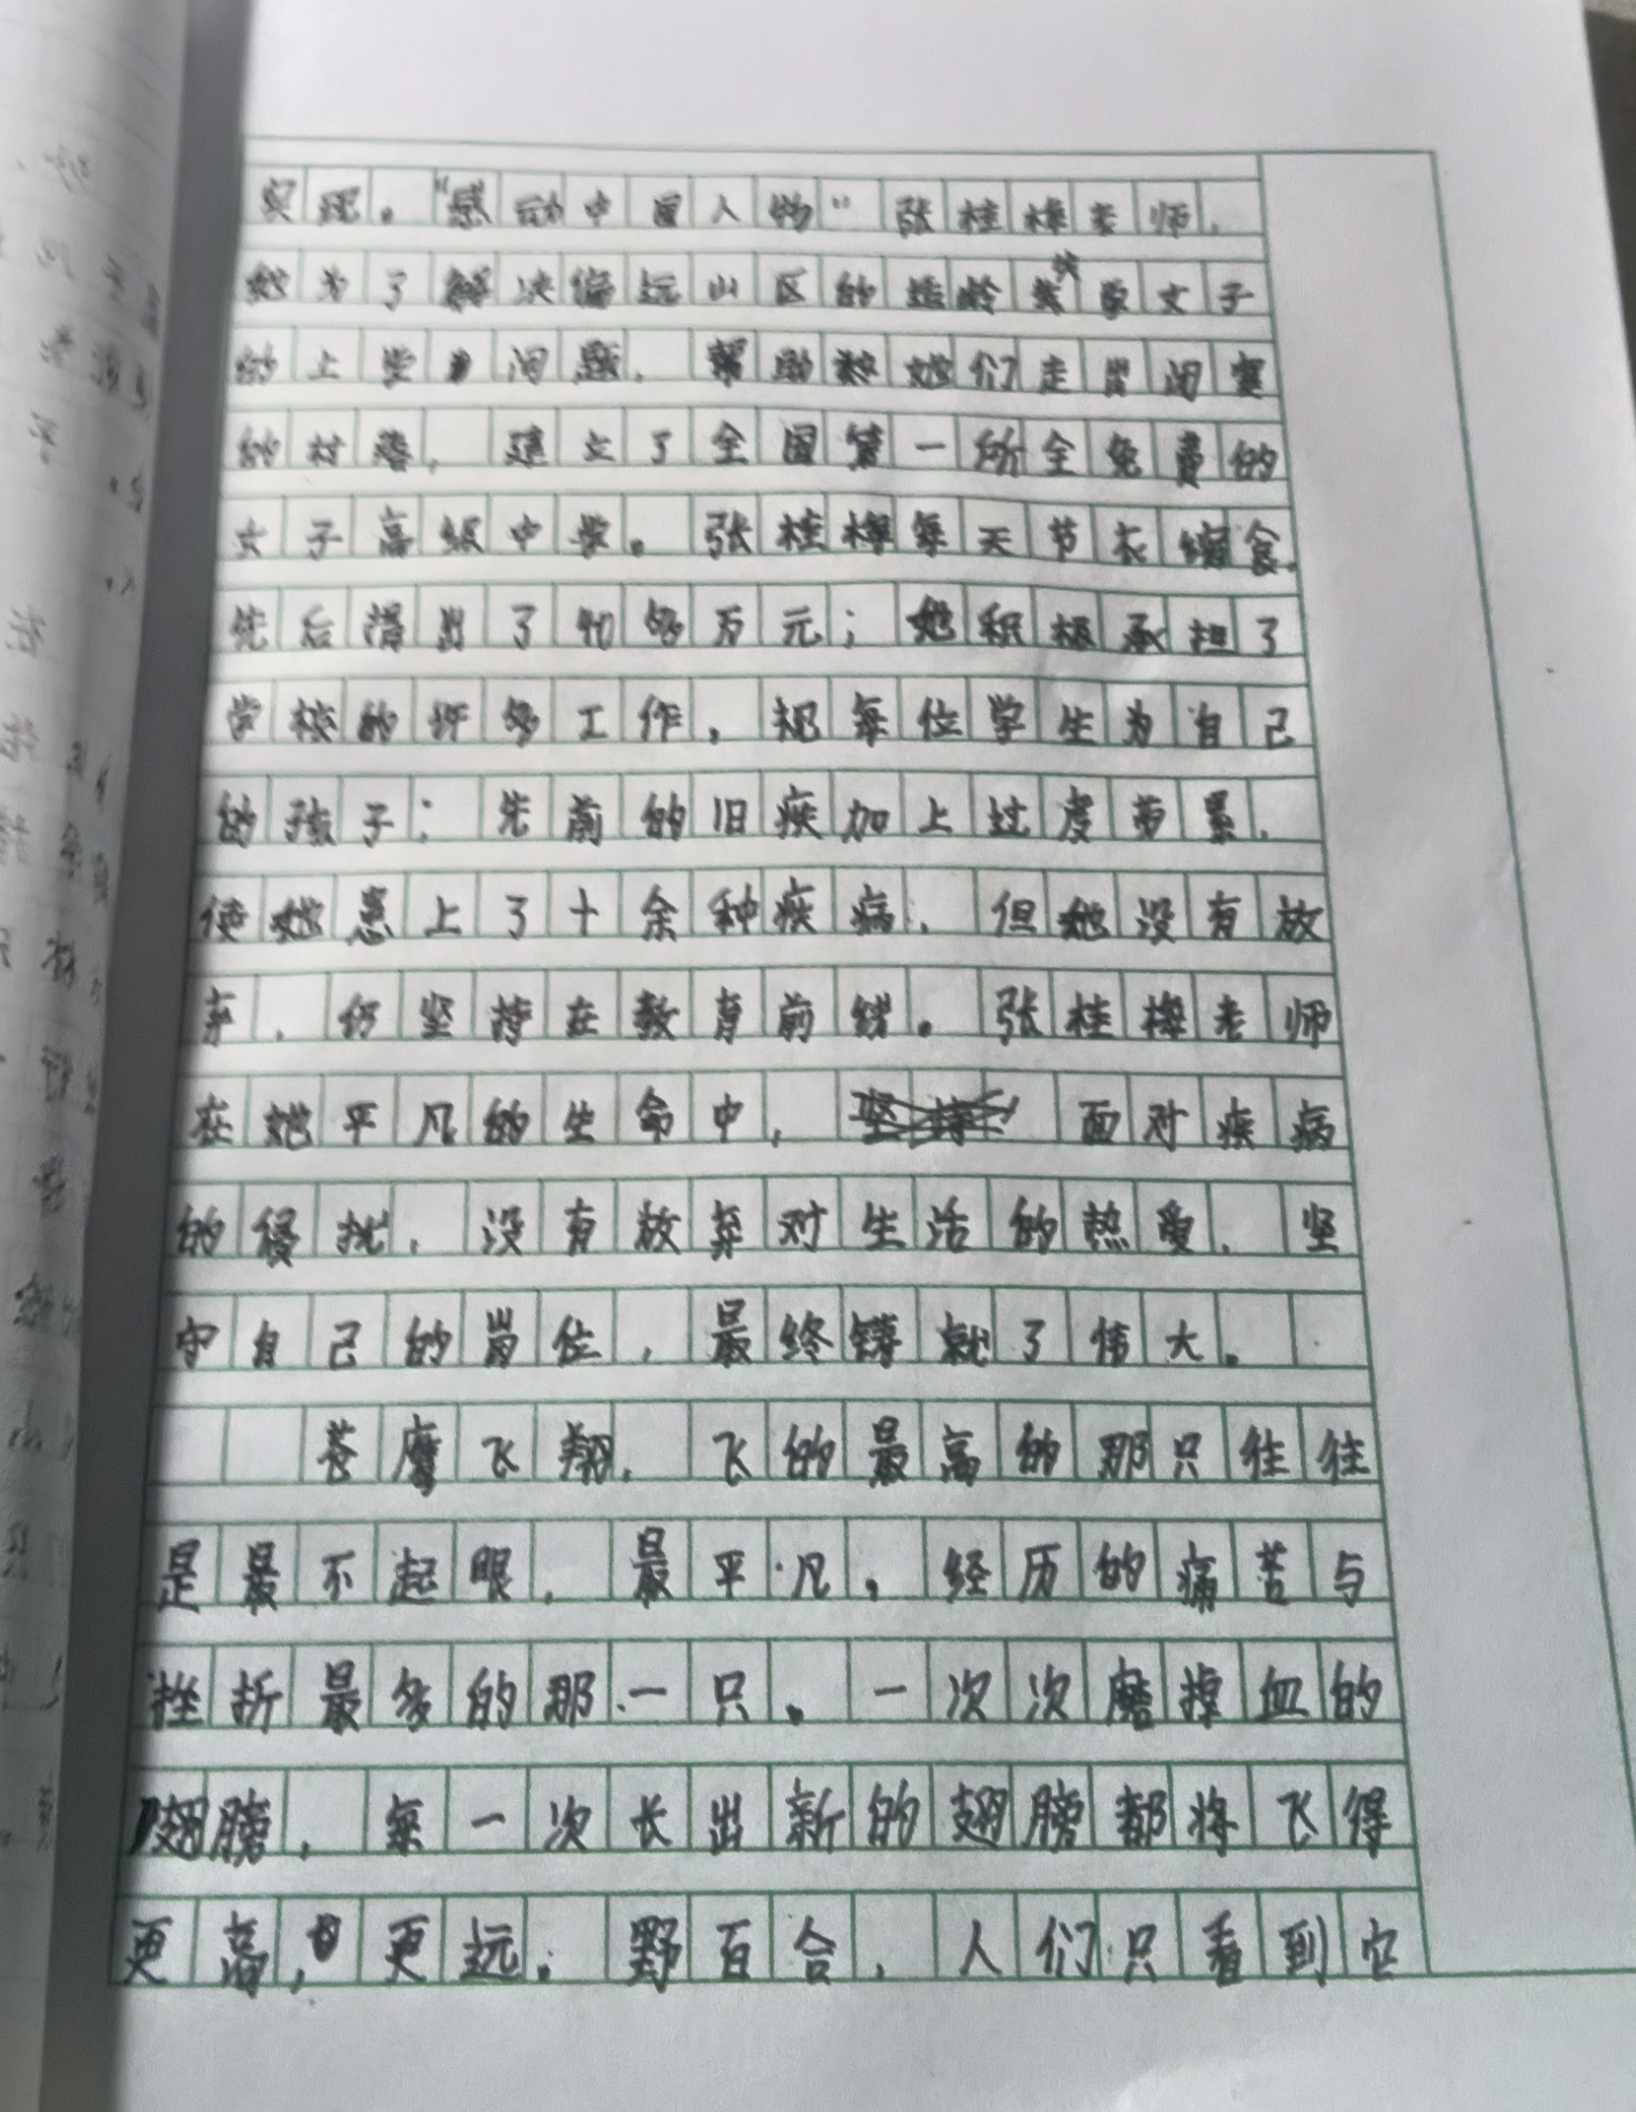 实现。“感动中国人物”张桂梅老师，
她为了解决偏远山区的适龄失学女子
的上学问题，帮助她们走出闭塞
的村落，建立了全国第一所全免费的
女子高级中学。张桂梅每天节衣缩食，
先后捐出了40多万元；她积极承担了
学校的许多工作，视每位学生为自己
的孩子；先前的旧疾加上过度劳累，
使她患上了十余种疾病，但她没有放
弃，仍坚持在教育前线。张桂梅老师
在她平凡的生命中，面对疾病
的侵扰，没有放弃对生活的热爱，坚
守自己的岗位，最终铸就了伟大。
苍鹰飞翔，飞的最高的那只往往
是最不起眼，最平凡，经历的痛苦与
挫折最多的那一只。一次次磨掉血的
翅膀，每一次长出新的翅膀都将飞得
更高，更远。野百合，人们只看到它